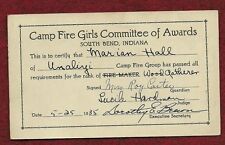 Camp Fire Girls Committee of Awards
SOUTH BEND, INDIANA
This is to certify that Marian Hall
of Unaliyi Camp Fire Group has passed all
requirements for the rank of FIRE MAKER Wood Gatherer
Signed May Roy Carter
Guardian
Signed
Date 5-25 1935 Dorothy E.
Executive Secretary